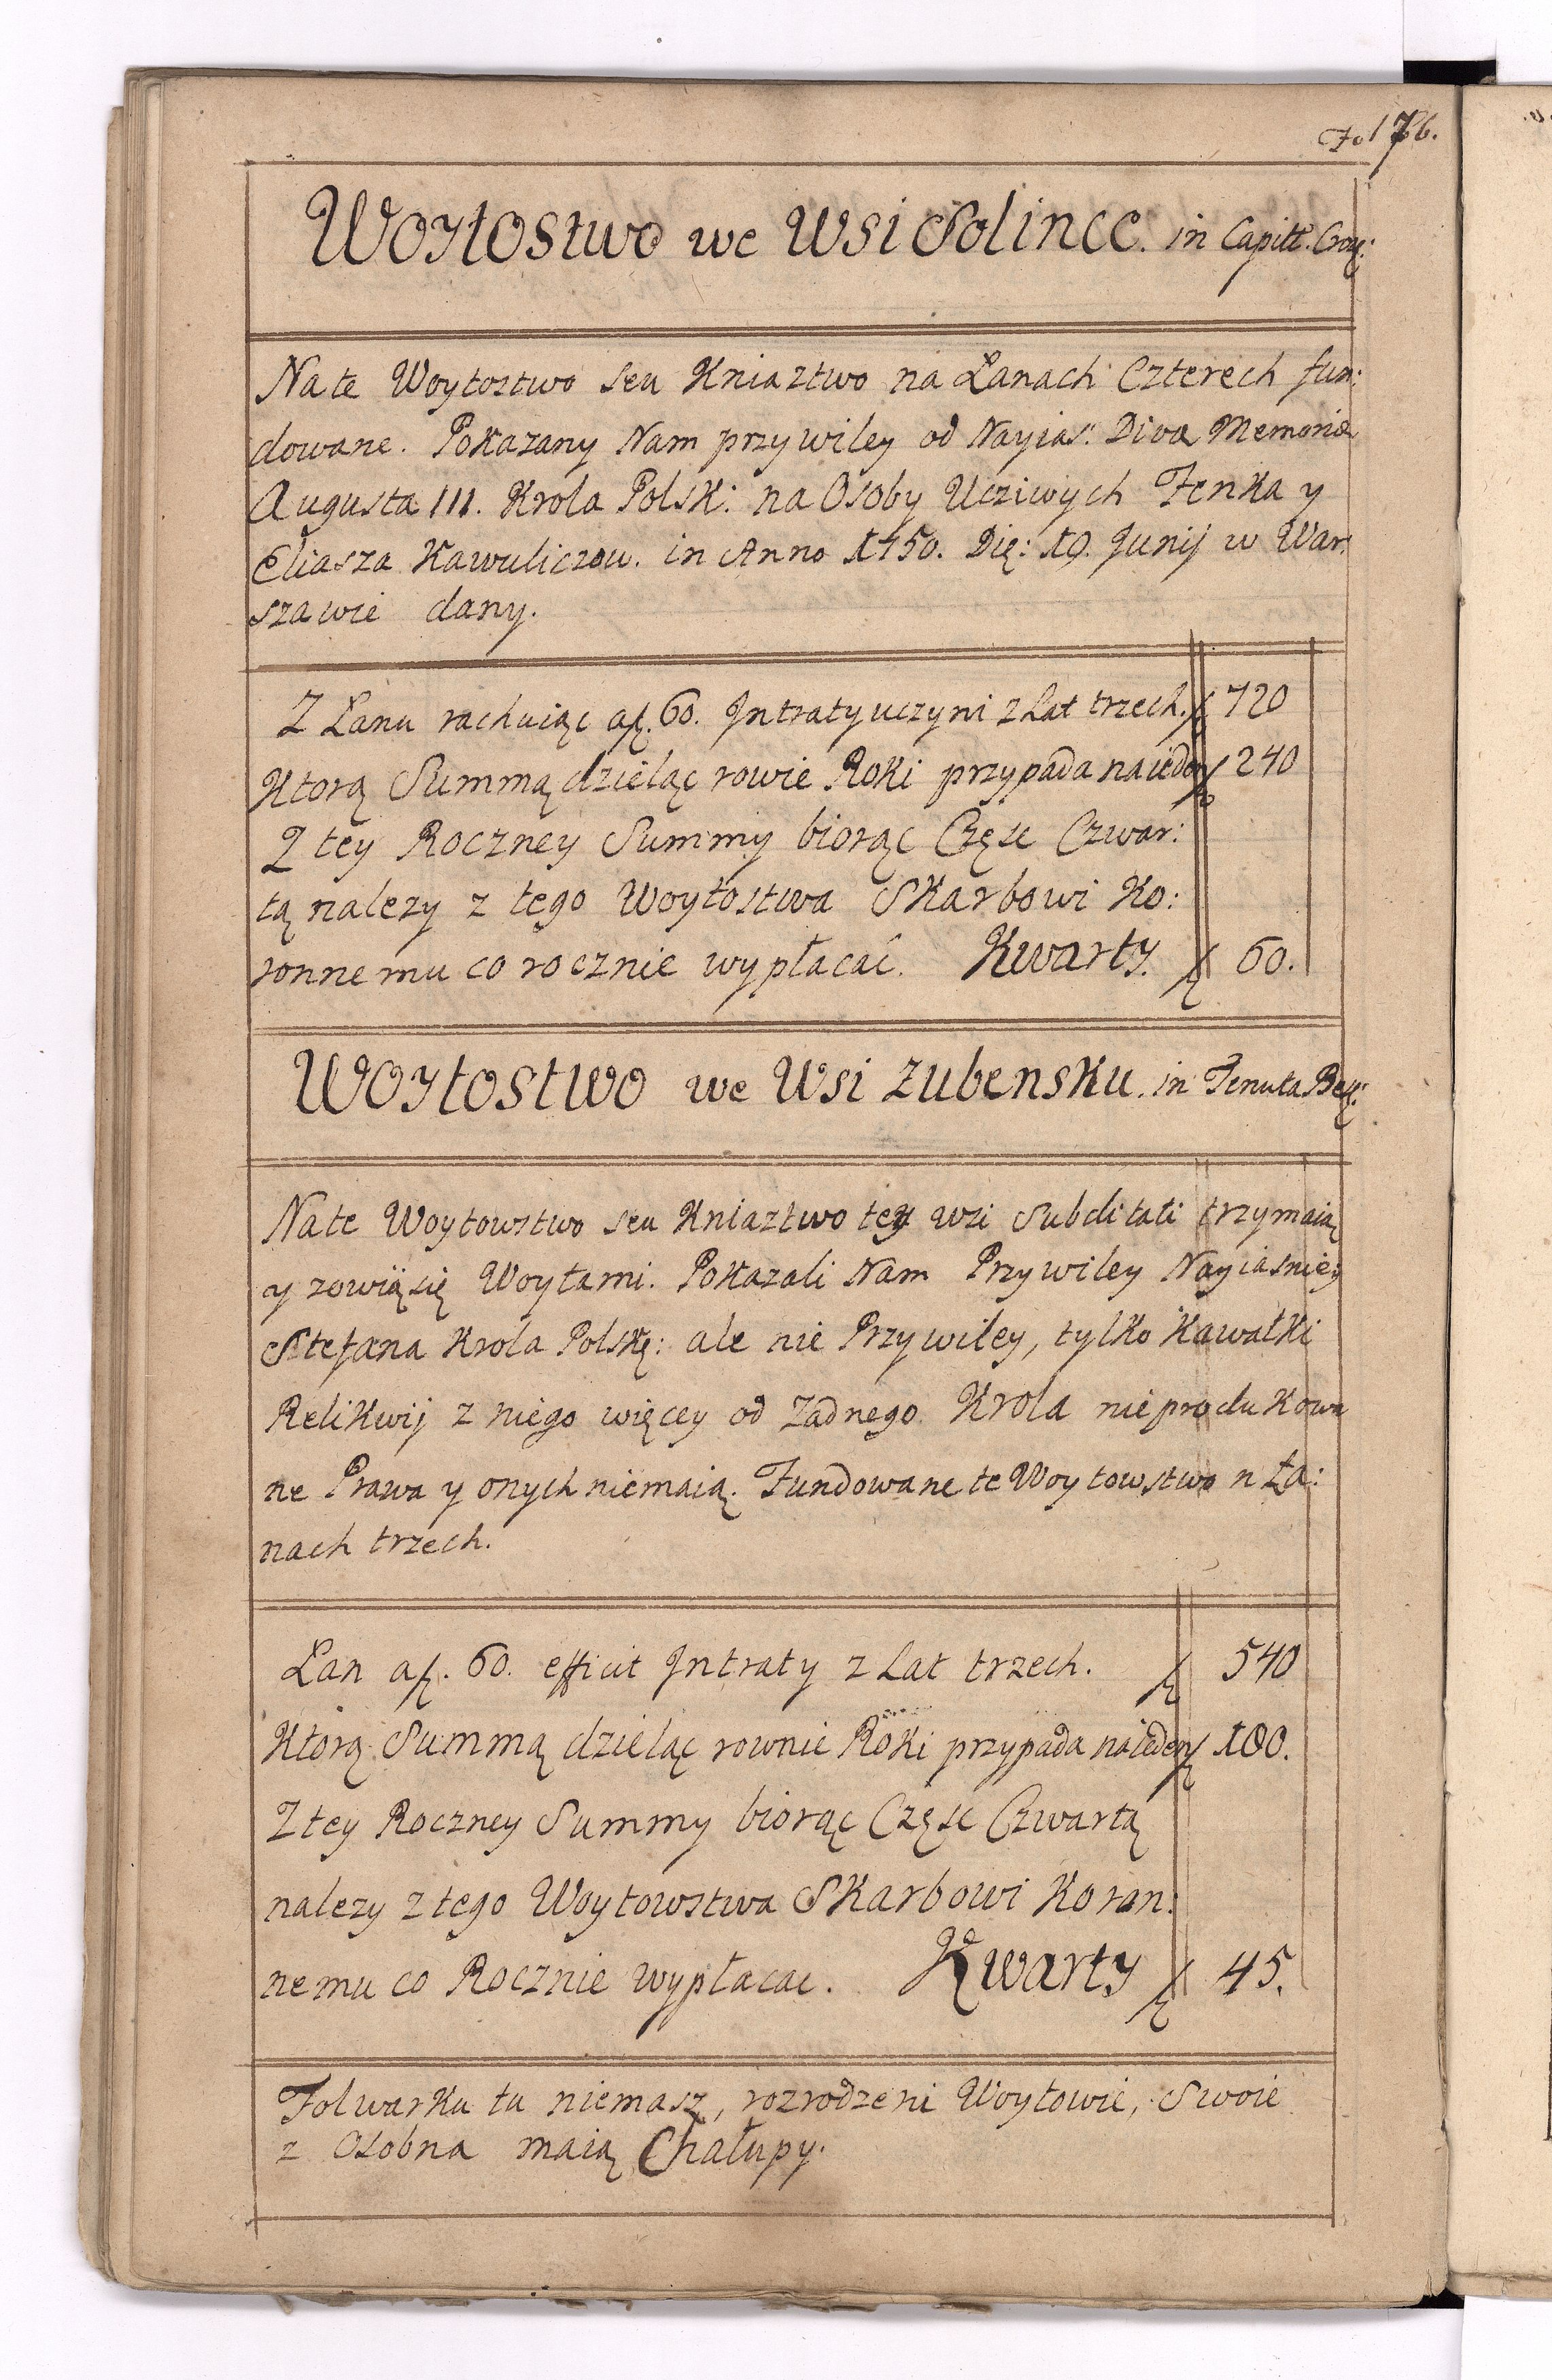 Fol 176.
Woytostwo we Wsi Solincc. in Capitt.
Na te Woytostwo seu Kniaztwo na Łanach Czterech fun:
dowane. Pokazany Nam przywiley od Nayias: Divæ Memoriæ
Augusta III. Krola Polsk: na Osoby Ucziwych Fenka y
Eliasza Kawuliczow. in Anno 1750. Dię: 19. Junij w War:
szawie dany.
Z Łanu rachuiąc a ƒ. 60. Intraty uczyni z Lat trzech. ƒ 720
Ktorą Summą dzieląc rowie Roki przypada na ieden ƒ 240
Z tey Roczney Summy biorąc Częsc Czwar:
tą nalezy z tego Woytostwa Skarbowi Ko:
ronnemu co rocznie wypłacać. Kwarty. ƒ 60.
Woytostwo we Wsi Zubensku. in Tenuta
Na te Woytowstwo seu Kniaztwo tey wsi Subditati trzymaią
y zowią się Woytami. Pokazali Nam Przywiley Nayiasnie:
Stefana Krola Polskę: ale nie Przywiley, tylko Kawałki
Relikwij z niego więcey od Zadnego Krola nie produkowa
ne Prawa y onych niemaią. Fundowane te Woytowstwo n Ła:
nach trzech.
Łan a ƒ. 60. efficit Intraty z Lat trzech. ƒ 540
Ktorą Summą dzieląc rownie Roki przypada na ieden ƒ 180.
Z tey Roczney Summy biorąc Częsc Czwartą
nalezy z tego Woytowstwa Skarbowi Koran:
nemu co Rocznie wypłacac. Kwarty ƒ 45.
Folwarku tu niemasz, rozrodzeni Woytowie, Swoie
z Osobna maią Chałupy.